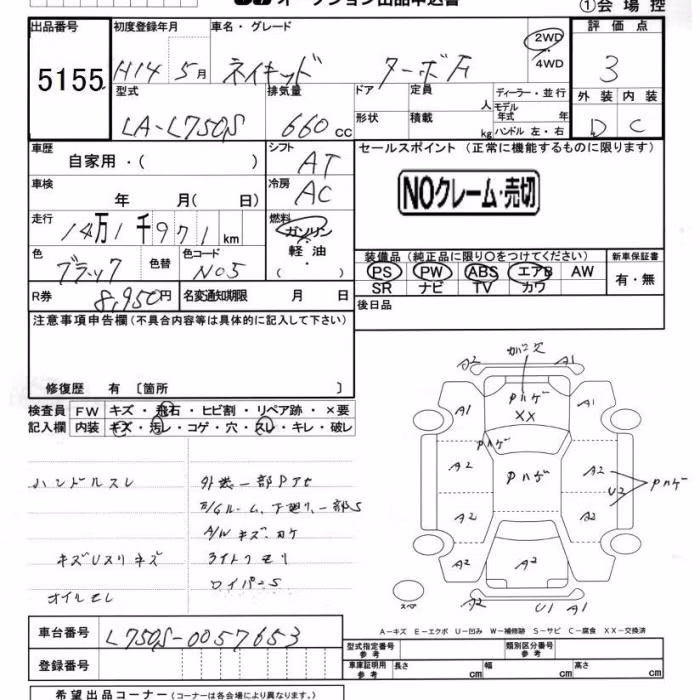 オークション出品申込書
①会場控
出品番号 初度登録年月 車名・グレード 2WD 評価点
5155 H14 5月 ネイキッド ターボF ・4WD 3
型式 排気量 ドア 定員 人 ディーラー・並行 外装 内装
LA-L750S 660cc 形状 積載 kg モデル年式 年 ハンドル 左・右 D C
車歴 自家用・( ) シフト AT セールスポイント(正常に機能するものに限ります)
車検 年 月(日) 冷房 AC NOクレーム・売切
走行 14万1千971km 燃料 ガソリン・軽油( )
色 ブラック 色替 色コード NO5 装備品(純正品に限り○をつけてください) 新車保証書
PS PW ABS エアB AW 有・無
SR ナビ TV カワ
R券 8,950円 名変通知期限 月 日 後日品
注意事項申告欄(不具合内容等は具体的に記入して下さい)
修復歴 有 〔箇所 〕
検査員 FW キズ・飛石・ヒビ割・リペア跡・×要
記入欄 内装 キズ・汚レ・コゲ・穴・スレ・キレ・破レ
ハンドルスレ 外装一部Pアセ
E/Gルーム、下廻り、一部S
A/W キズ、カケ
キズUスリキズ ライトクモリ
オイルモレ ワイパーS
A2 A1
A1 Pハゲ A1
XX
Pハゲ
A2 Pハゲ A2 Pハゲ
U2
A2 A2
A2 A2 A2
スペア A2 U1 A1
A－キズ E－エクボ U－凹み W－補修跡 S－サビ C－腐食 XX－交換済
車台番号 L750S-0057653
登録番号
型式指定番号 参考 類別区分番号 参考
車庫証明用 参考 長さ cm 幅 cm 高さ cm
希望出品コーナー(コーナーは各会場により異なります。)